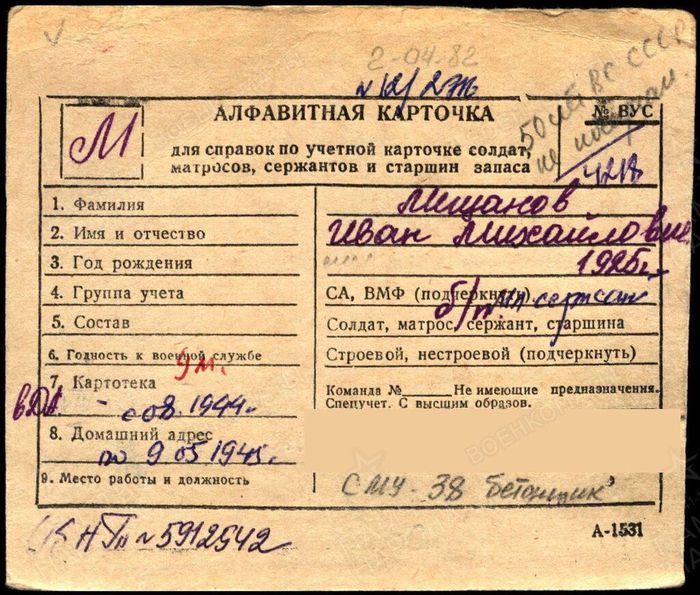 2-04-82
№12/277
АЛФАВИТНАЯ КАРТОЧКА
№ ВУС
М
для справок по учетной карточке солдат,
матросов, сержантов и старшин запаса
50 лет ВС СССР
не
421
1. Фамилия
Мищанов
2. Имя и отчество
Иван Михайлович
3. Год рождения
1925г.
4. Группа учета
СА, ВМФ (подчеркнуть)
б/п. мл сержант
5. Состав
Солдат, матрос, сержант, старшина
6. Годность к военной службе
Строевой, нестроевой (подчеркнуть)
9 м.
7. Картотека
Команда № Не имеющие предназначения.
Спецучет. С высшим образов.
с 08.1944г.
8. Домашний адрес
по 9 05 1945г.
9. Место работы и должность
СМУ-38 бетонщик
№5912542
А-1531